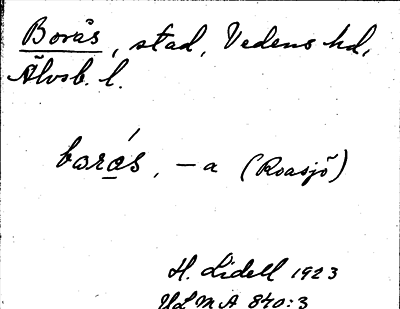 Borås, stad, Vedens hd,
Älvsb. l.
borås, – a (Roasjö)
H. Lidell 1923
ULMA 840:3